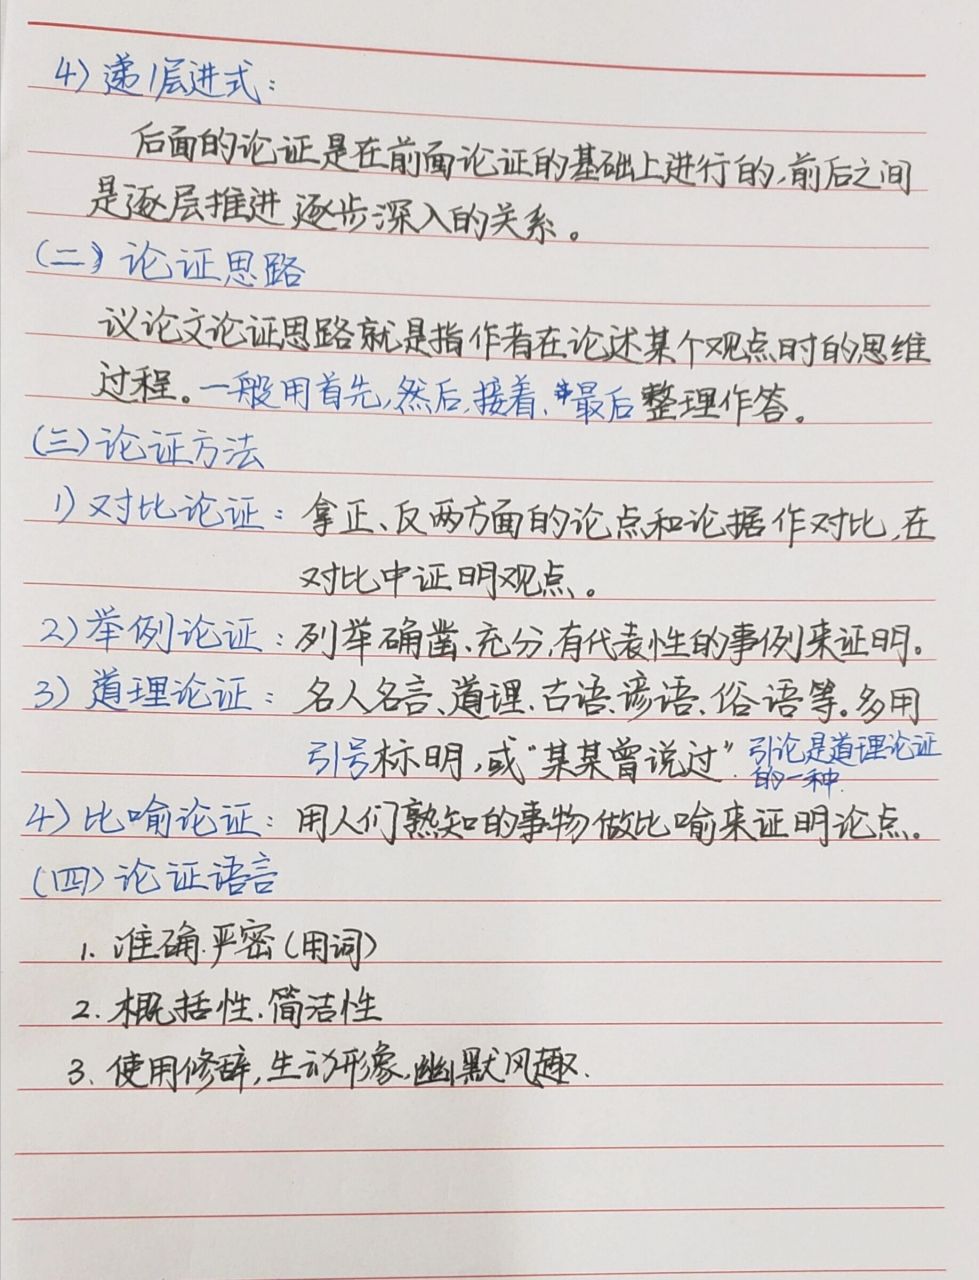 4) 递层进式：
后面的论证是在前面论证的基础上进行的,前后之间
是逐层推进 逐步深入的关系。
(二) 论证思路
议论文论证思路就是指作者在论述某个观点时的思维
过程。一般用首先,然后,接着、最后 整理作答。
(三) 论证方法
1) 对比论证：拿正、反两方面的论点和论据作对比,在
对比中证明观点。
2) 举例论证：列举确凿、充分,有代表性的事例来证明。
3) 道理论证：名人名言、道理、古语、谚语、俗语等。多用
引号标明,或“某某曾说过”. 引论是道理论证
的一种.
4) 比喻论证：用人们熟知的事物做比喻来证明论点。
(四) 论证语言
1. 准确.严密(用词)
2. 概括性.简洁性
3. 使用修辞,生动形象.幽默风趣.